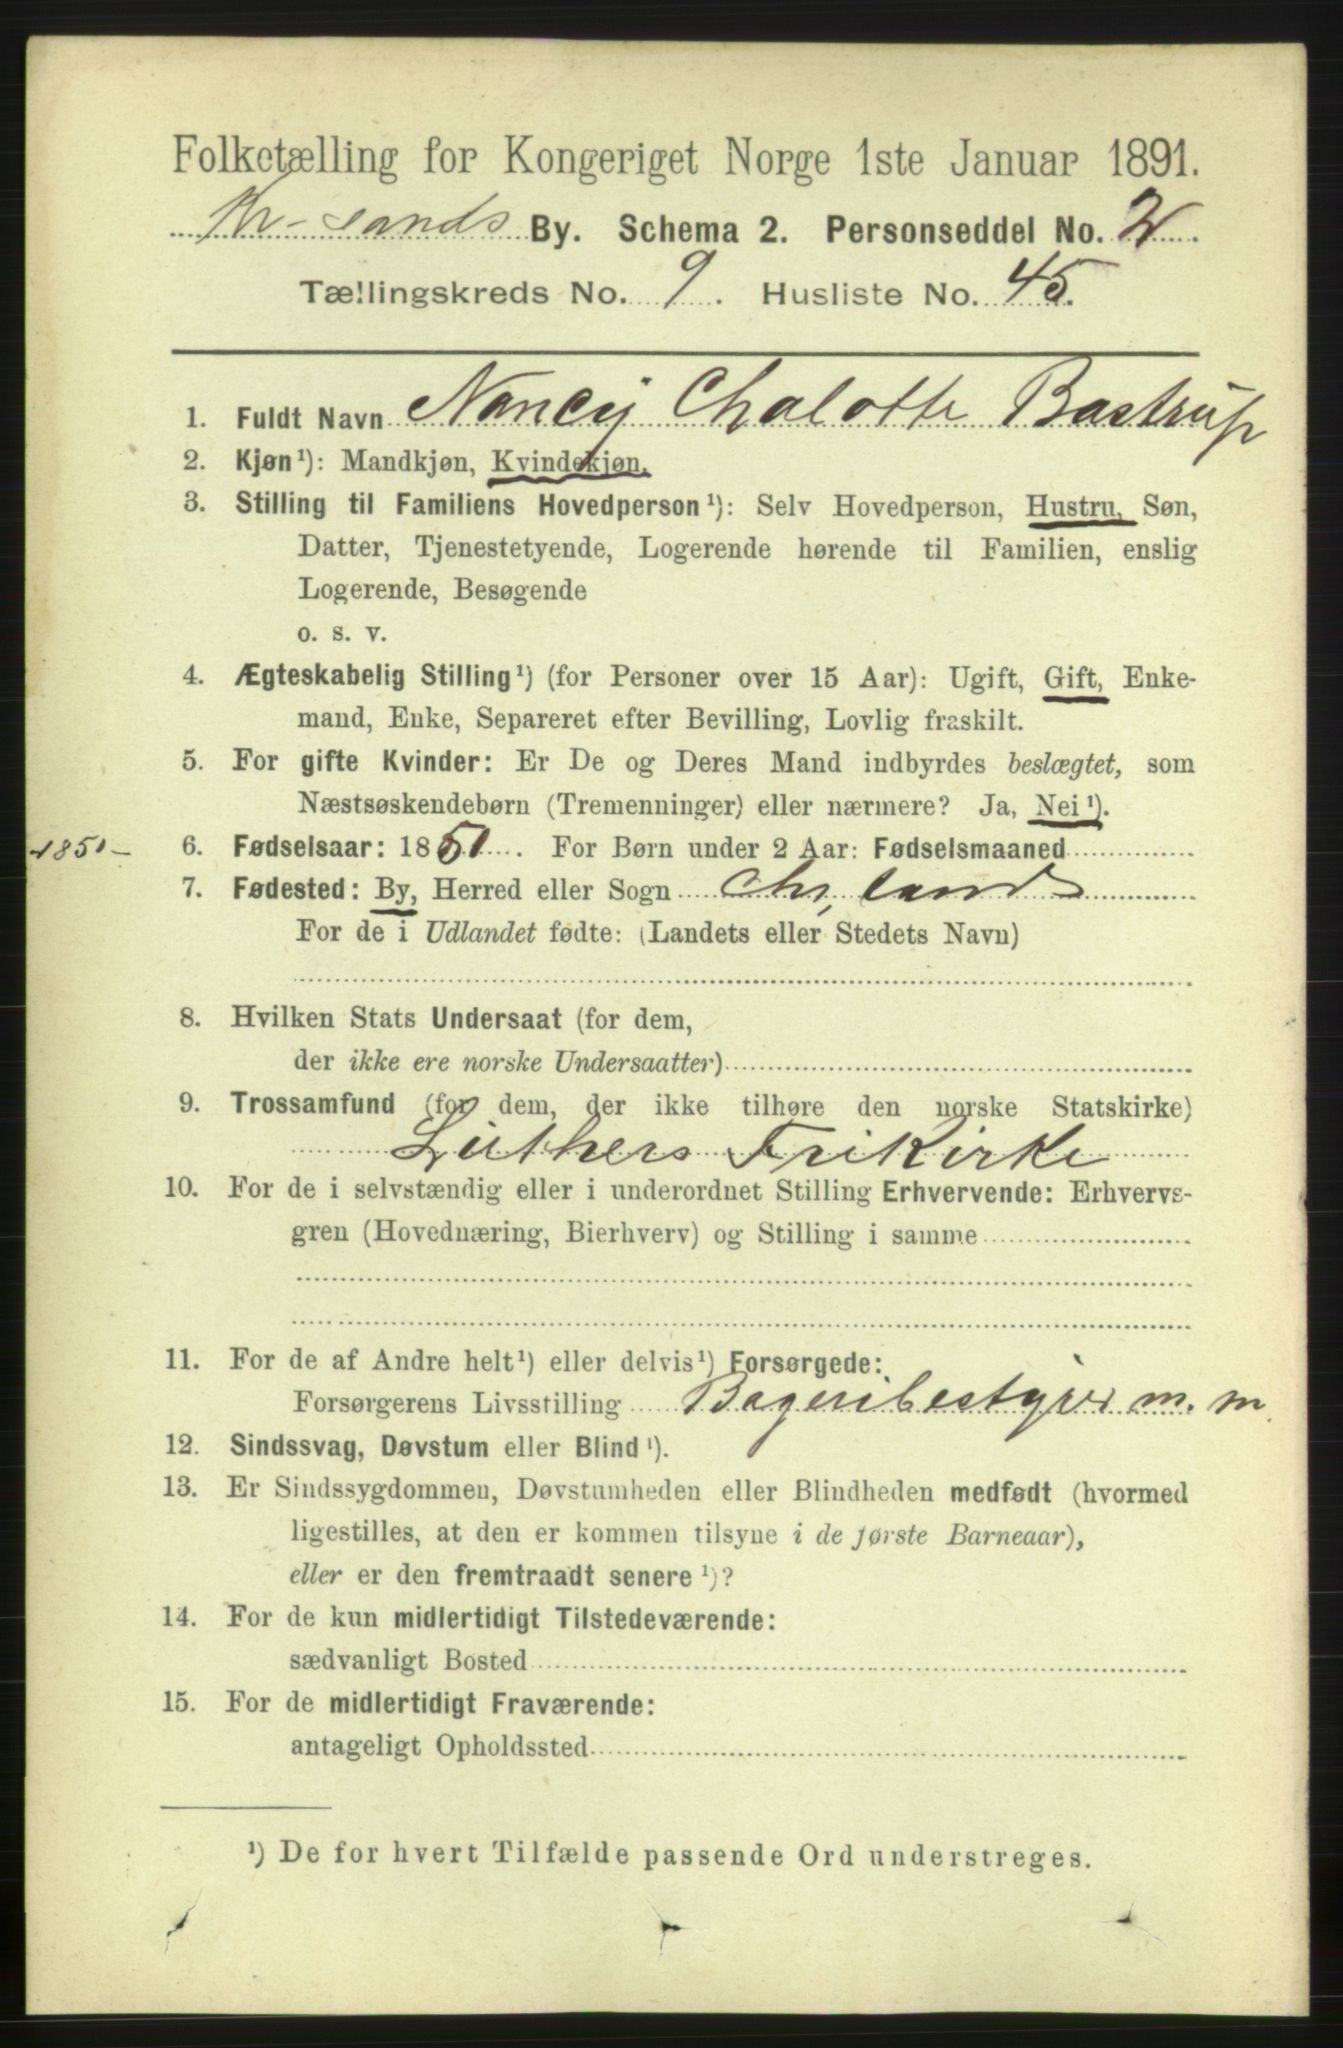 Folketælling for Kongeriget Norge 1ste Januar 1891.
Kr-sands By. Schema 2. Personseddel No. 2
Tællingskreds No. 9. Husliste No. 45.
1. Fuldt Navn Nancy Chalotte Bastrup
2. Kjøn¹): Mandkjøn, Kvindekjøn.
3. Stilling til Familiens Hovedperson¹): Selv Hovedperson, Hustru, Søn,
Datter, Tjenestetyende, Logerende hørende til Familien, enslig
Logerende, Besøgende
o. s. v.
4. Ægteskabelig Stilling¹) (for Personer over 15 Aar): Ugift, Gift, Enke-
mand, Enke, Separeret efter Bevilling, Lovlig fraskilt.
5. For gifte Kvinder: Er De og Deres Mand indbyrdes beslægtet, som
Næstsøskendebørn (Tremenninger) eller nærmere? Ja, Nei¹).
1851- 6. Fødselsaar: 1851. For Børn under 2 Aar: Fødselsmaaned
7. Fødested: By, Herred eller Sogn Chr, sand
For de i Udlandet fødte: (Landets eller Stedets Navn)
8. Hvilken Stats Undersaat (for dem,
der ikke ere norske Undersaatter)
9. Trossamfund (for dem, der ikke tilhøre den norske Statskirke)
Luthers Frikirke
10. For de i selvstændig eller i underordnet Stilling Erhvervende: Erhvervs-
gren (Hovednæring, Bierhverv) og Stilling i samme
11. For de af Andre helt¹) eller delvis¹) Forsørgede:
Forsørgerens Livsstilling Bageribestyrer m. m.
12. Sindssvag, Døvstum eller Blind¹).
13. Er Sindssygdommen, Døvstumheden eller Blindheden medfødt (hvormed
ligestilles, at den er kommen tilsyne i de første Barneaar),
eller er den fremtraadt senere¹)?
14. For de kun midlertidigt Tilstedeværende:
sædvanligt Bosted
15. For de midlertidigt Fraværende:
antageligt Opholdssted
¹) De for hvert Tilfælde passende Ord understreges.